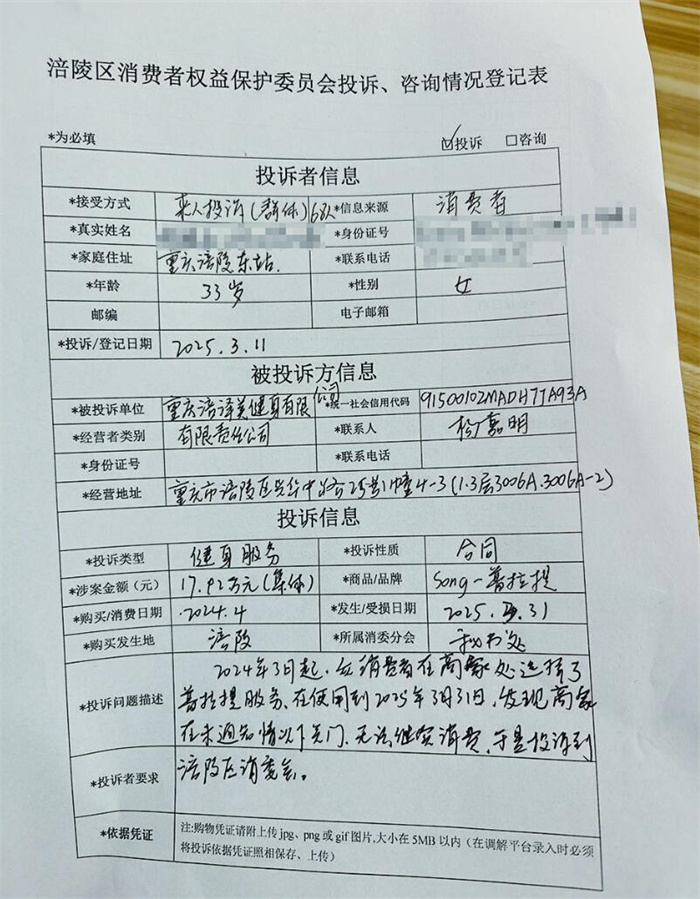 涪陵区消费者权益保护委员会投诉、咨询情况登记表
*为必填 ☑投诉 □咨询
投诉者信息
*接受方式 来人投诉(群体)68人 *信息来源 消费者
*真实姓名 *身份证号
*家庭住址 重庆涪陵东站. *联系电话
*年龄 33岁 *性别 女
邮编 电子邮箱
*投诉/登记日期 2025.3.11
被投诉方信息
*被投诉单位 重庆涪泽美健身有限公司 *统一社会信用代码 91500102MADH77A93A
*经营者类别 有限责任公司 *联系人 嘉明
*身份证号 *联系电话
*经营地址 重庆市涪陵区兴华中路25号1幢4-3(1.3层3006A.3006A-2)
投诉信息
*投诉类型 健身服务 *投诉性质 合同
*涉案金额(元) 17.92万元(集体) *商品/品牌 Song-普拉提
*购买/消费日期 2024.4 *发生/受损日期 2025.3.31
*购买发生地 涪陵 *所属消委分会 秘书处
*投诉问题描述 2024年3月起,众消费者在商家处选择了
普拉提服务、在使用到2025年3月31日,发现商家
在未通知情况下关门.无法继续消费,于是投诉到
*投诉者要求 涪陵区消委会。
*依据凭证 注:购物凭证请附上传jpg、png或gif图片,大小在5MB以内(在调解平台录入时必须
将投诉依据凭证照相保存、上传)